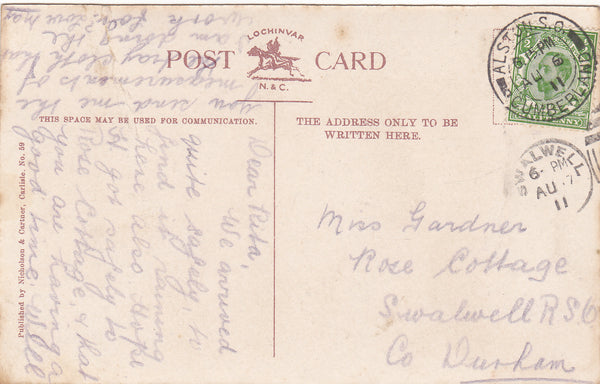 LOCHINVAR
POST CARD
N. & C.
THIS SPACE MAY BE USED FOR COMMUNICATION.
THE ADDRESS ONLY TO BE
WRITTEN HERE.
Published by Nicholson & Cartner, Carlisle. No. 59
ALSTON S.O.
CUMBERLAND
AU 6
11
SWALWELL
6- PM
AU 7
11
Miss Gardner
Rose Cottage
Swalwell R S O
Co Durham
Dear Rita,
We arrived
quite safely to
find it raining
here also Hope
H got safely to
Rose Cottage & that
you are having a
good time. Will
you send me the
measurements of
tray cloth that
I am doing the
work for